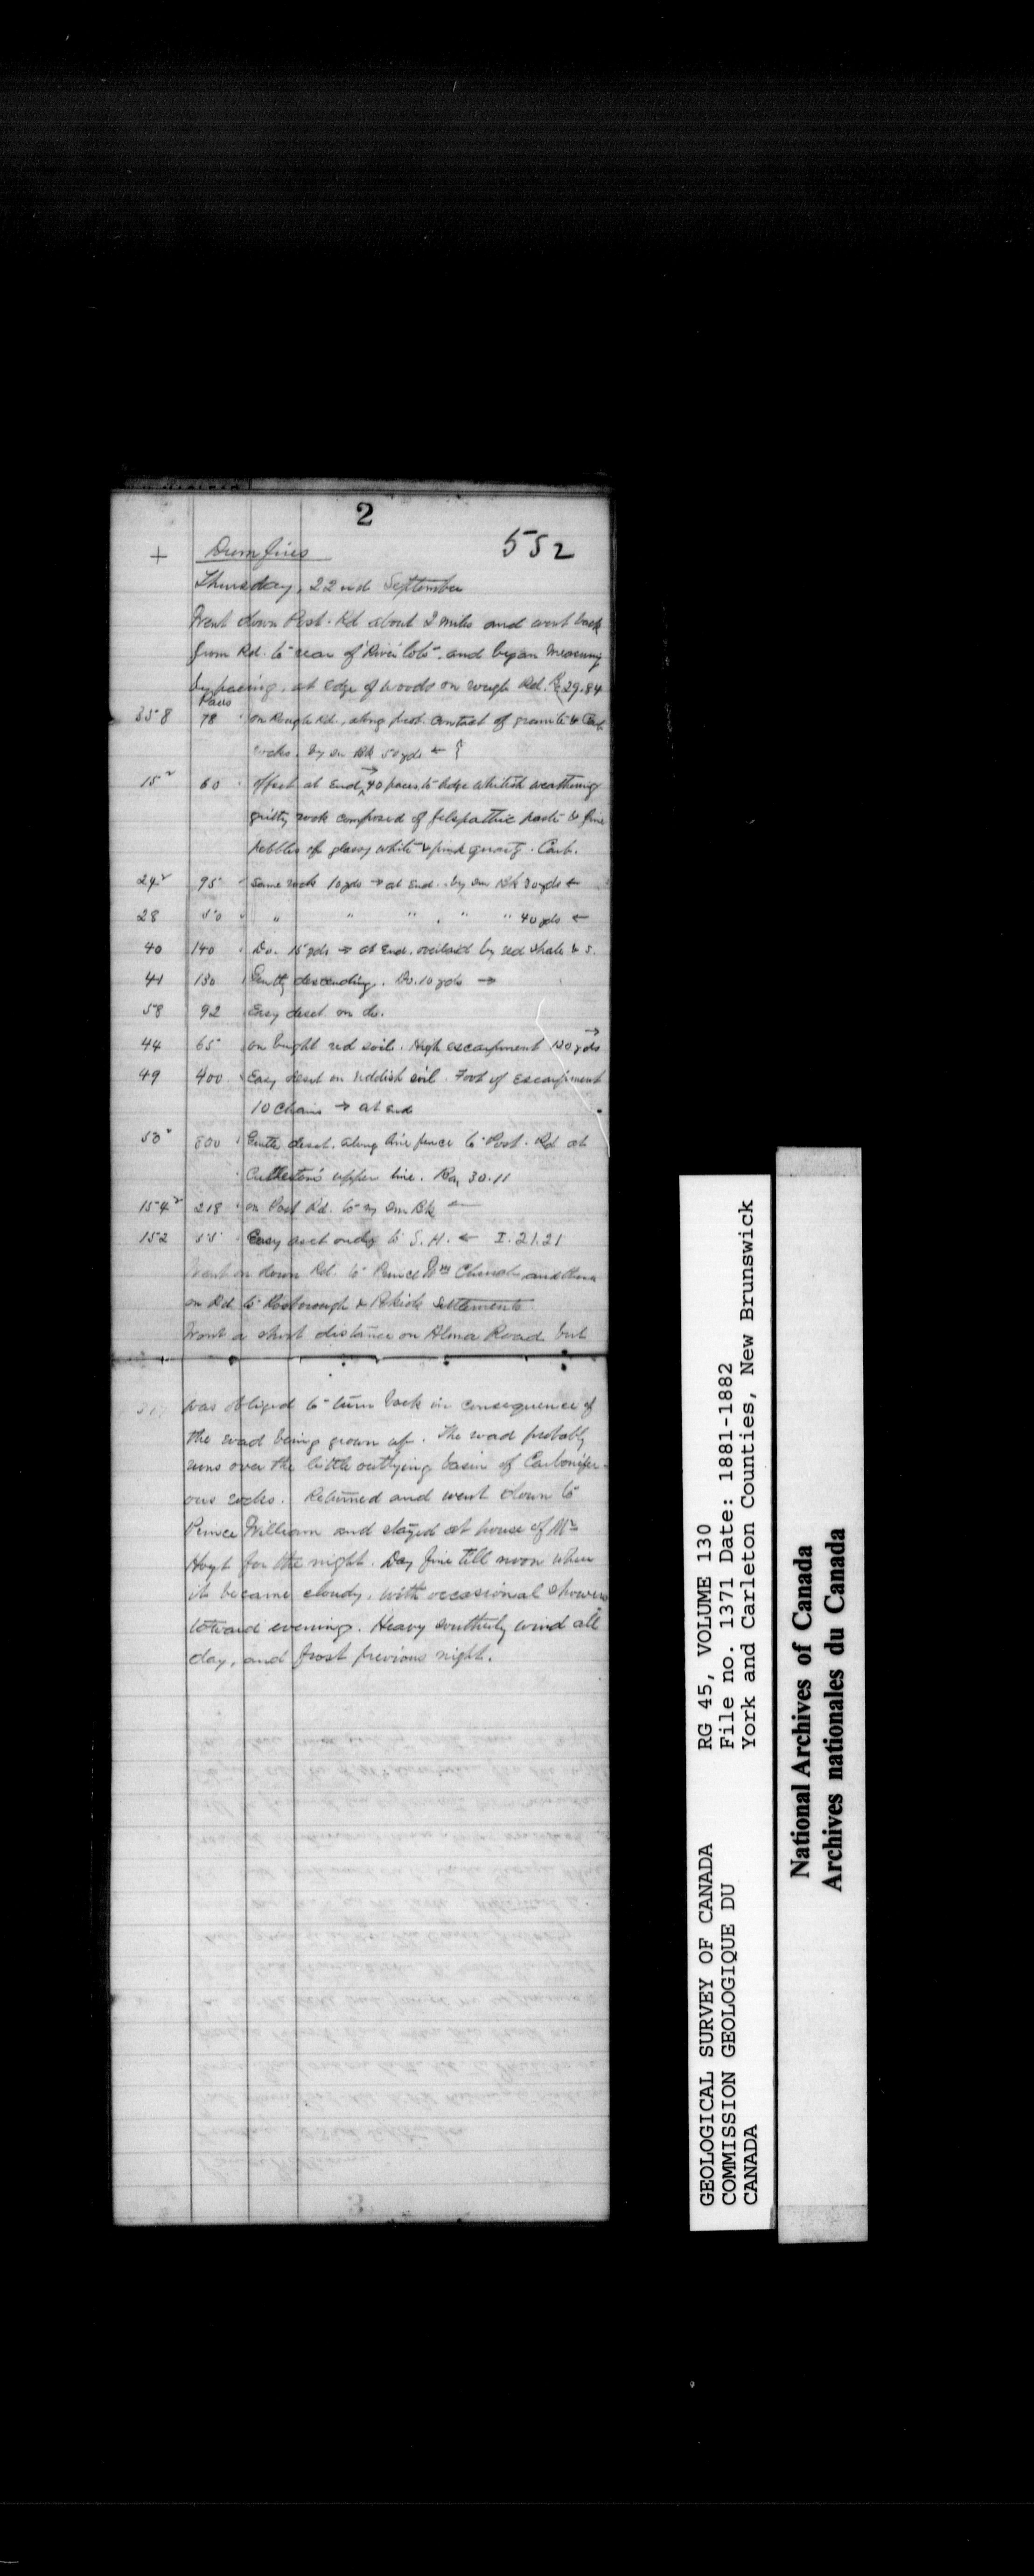 2
552
+ Dumfries
Thursday, 22nd September
Went down Post. Rd about 2 miles and went back
from Rd. to rear of River lots. and began measuring
by pacing, at edge of woods on rough Rd. 29.84
Paces
358 78 on Rough Rd., along prob. contact of granite & Carb.
rocks. by sm Bk 50 yds ←
15 60 offset at End, → 40 paces to ledge whitish weathering
gritty rock composed of felspathic paste & fine
pebbles of glassy white & pink quartz. Carb.
24 95 same rock 10 yds → at End. by sm Bk 30 yds ←
28 50 " " " " " 40 yds ←
40 140 Do. 15 yds → at End. overlaid by red shale & s.
41 130 Gently descending. Do. 10 yds →
58 92 Easy desct on do.
44 65 on bright red soil. High escarpment 120 yds →
49 400 Easy desct on reddish soil. Foot of Escarpment
10 Chains → at End
50 800 Gentle desct. along line fence to Post. Rd at
upper line. Bar, 30.11
154 218 on Post Rd. to by sm Bk ←
152 55 Easy asct ondg to S. H. ← I. 21.21
Went on down Rd. to Prince Wm Church and then
on Rd to & Settlements
Went a short distance on Alma Road but
was obliged to turn back in consequence of
the road being grown up. The road probably
runs over the little outlying basin of Carbonifer-
ous rocks. Returned and went down to
Prince William and stayed at house of Mr
Hoyt for the night. Day fine till noon when
it became cloudy, with occasional showers
toward evening. Heavy southerly wind all
day, and frost previous night.
GEOLOGICAL SURVEY OF CANADA
COMMISSION GEOLOGIQUE DU
CANADA
RG 45, VOLUME 130
File no. 1371 Date: 1881-1882
York and Carleton Counties, New Brunswick
National Archives of Canada
Archives nationales du Canada